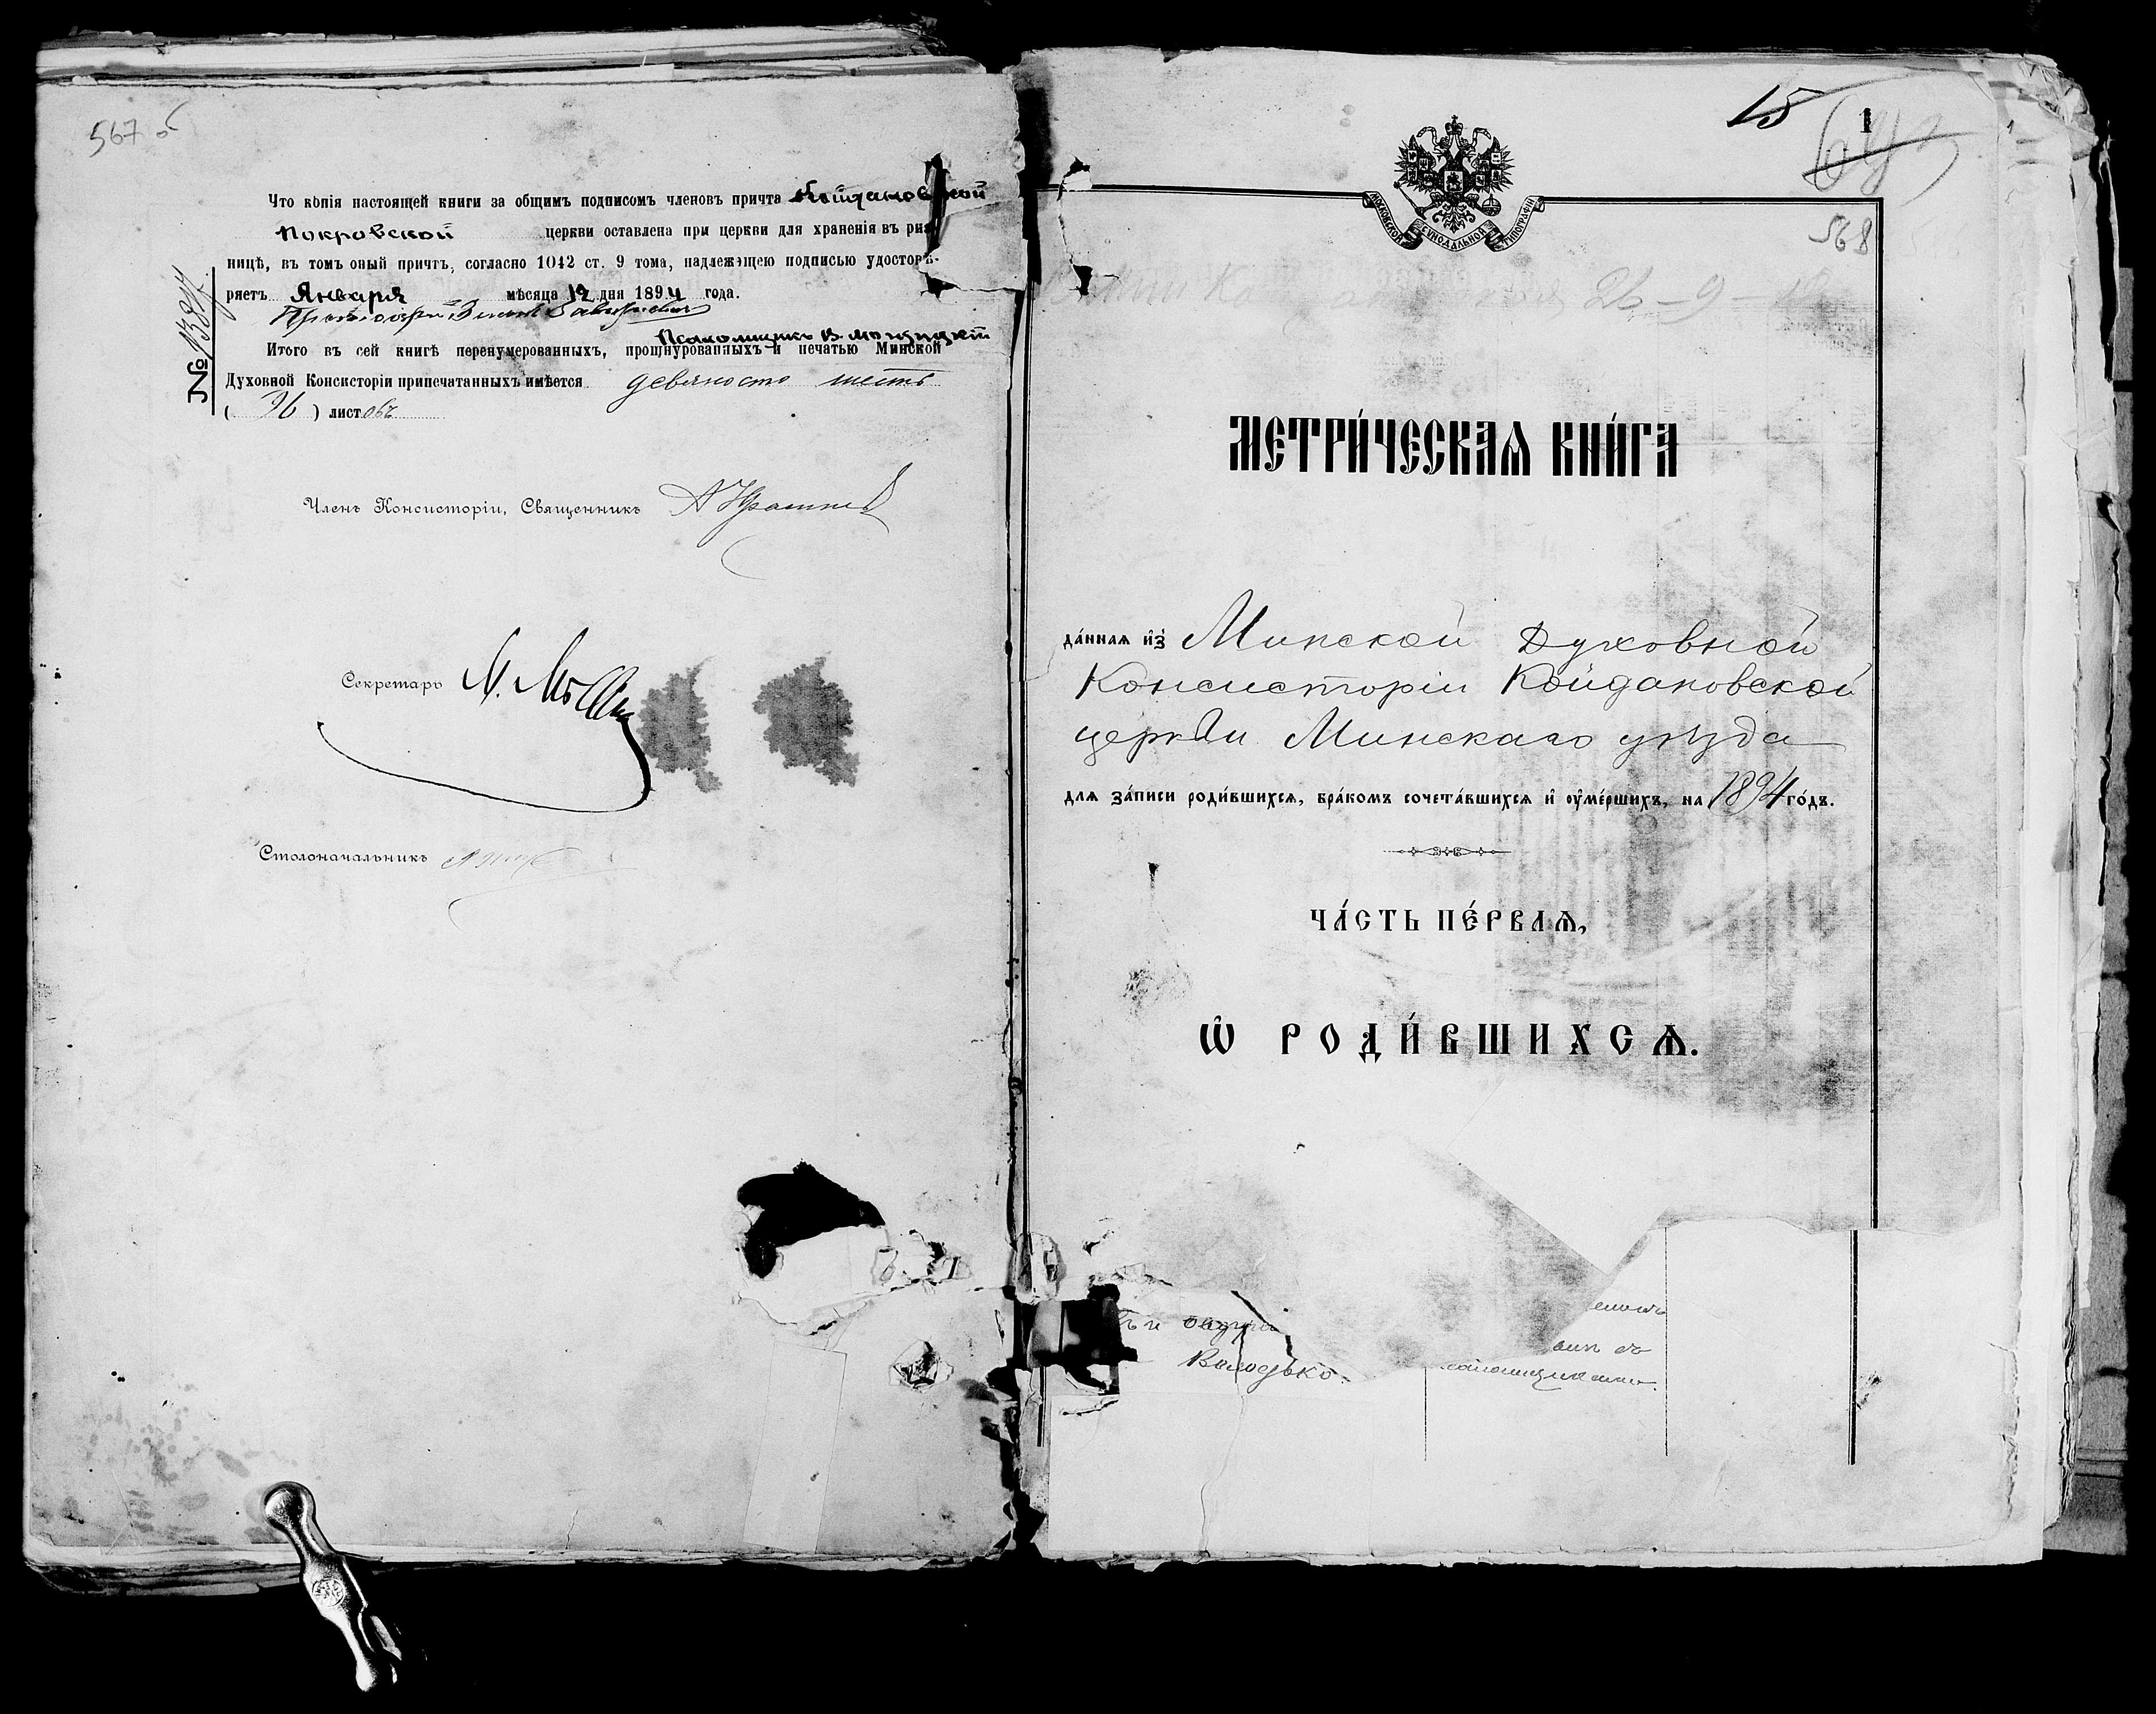 567 об
Что копія настоящей книги за общимъ подписомъ членовъ причта Койдановской
Покровской церкви оставлена при церкви для храненія въ риз-
ницѣ, въ томъ оный причтъ, согласно 1042 ст. 9 тома, надлежащею подписью удостовѣ-
ряетъ Января мѣсяца 12 дня 1894 года.
Псаломщикъ
Итого въ сей книгѣ перенумерованныхъ, прошнурованныхъ и печатью Минской
Духовной Консисторіи припечатанныхъ имѣется девяносто шесть
( 96 ) листовъ
№
Членъ Консисторіи, Священникъ
Секретарь
Столоначальникъ
15
1
568
МОСКОВСКОЙ СѴНОДАЛЬНОЙ ТИПОГРАФІИ
МЕТРИ́ЧЕСКАѦ КНИ́ГА
да́ннаѧ и҆зъ Минской Духовной
Консисторіи Койдановской
церкви Минскаго уѣзда
длѧ за́писи роди́вшихсѧ, бра́комъ сочета́вшихсѧ и҆ оу҆ме́ршихъ, на 1894 го́дъ.
ЧА́СТЬ ПЕ́РВАѦ,
Ѡ҆ РОДИ́ВШИХСѦ.
Володько.